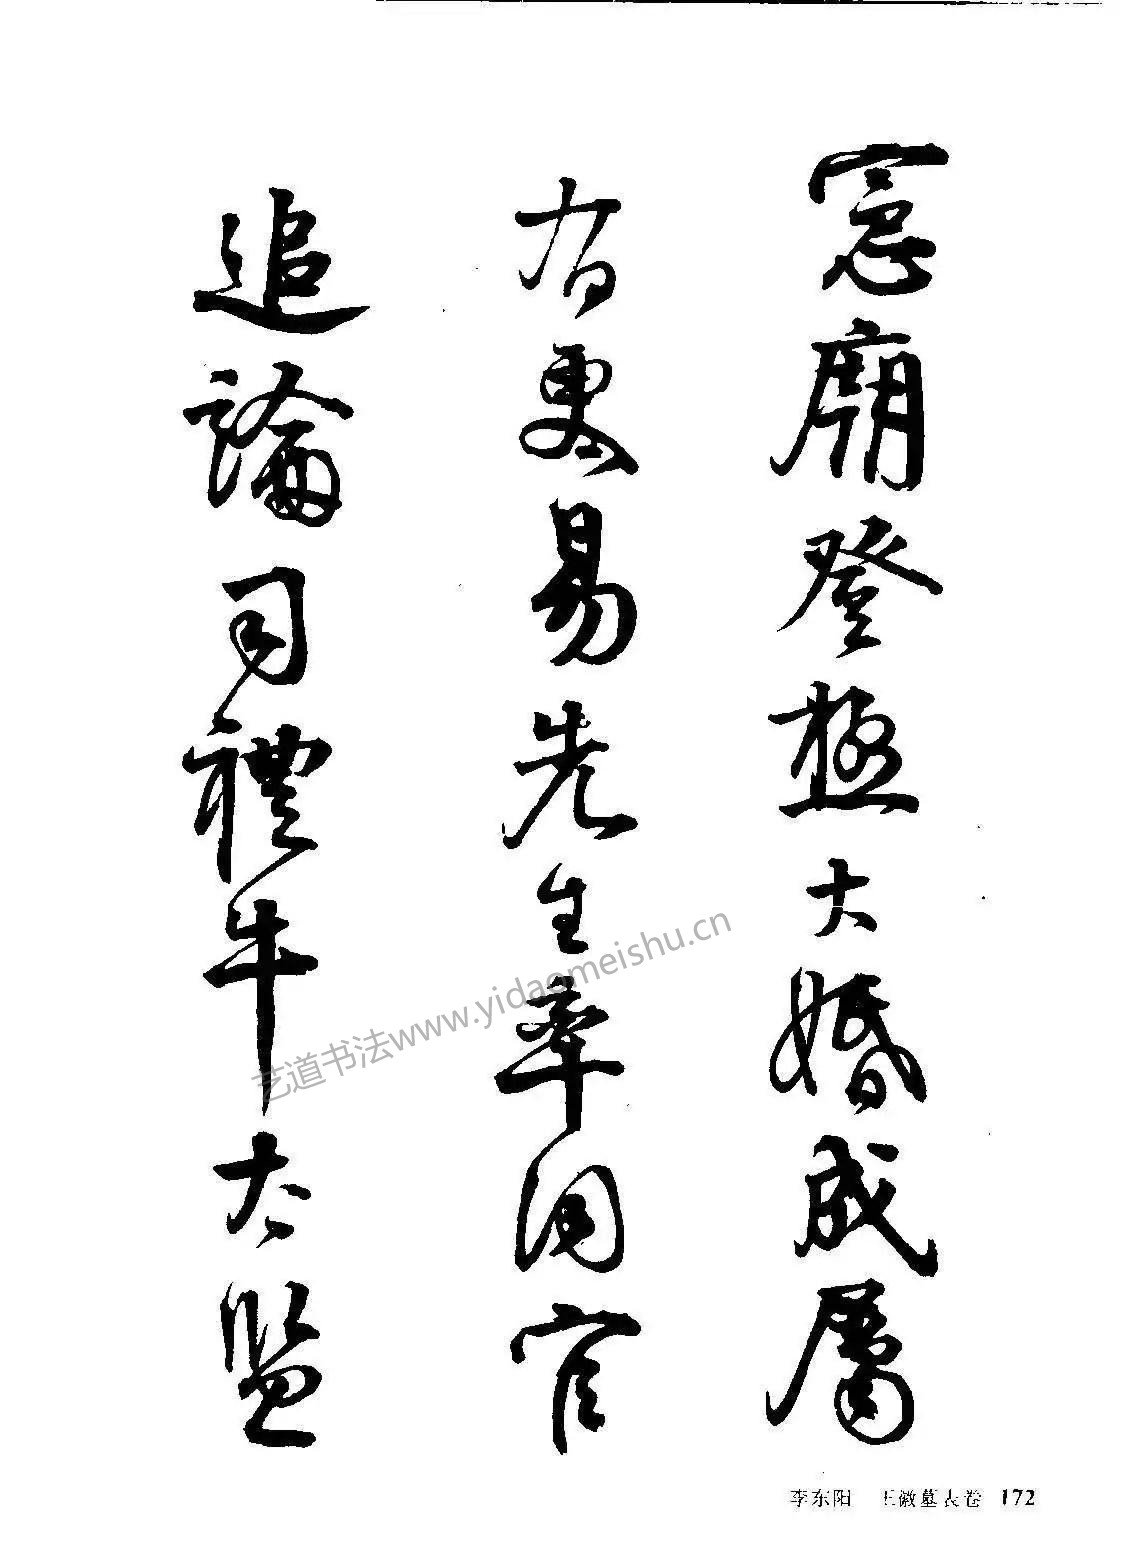 憲廟登極大婚成屬
有更易先生率同官
追論司禮牛太監
艺道书法www.yidaomeishu.cn
李东阳 王徽墓表卷 172